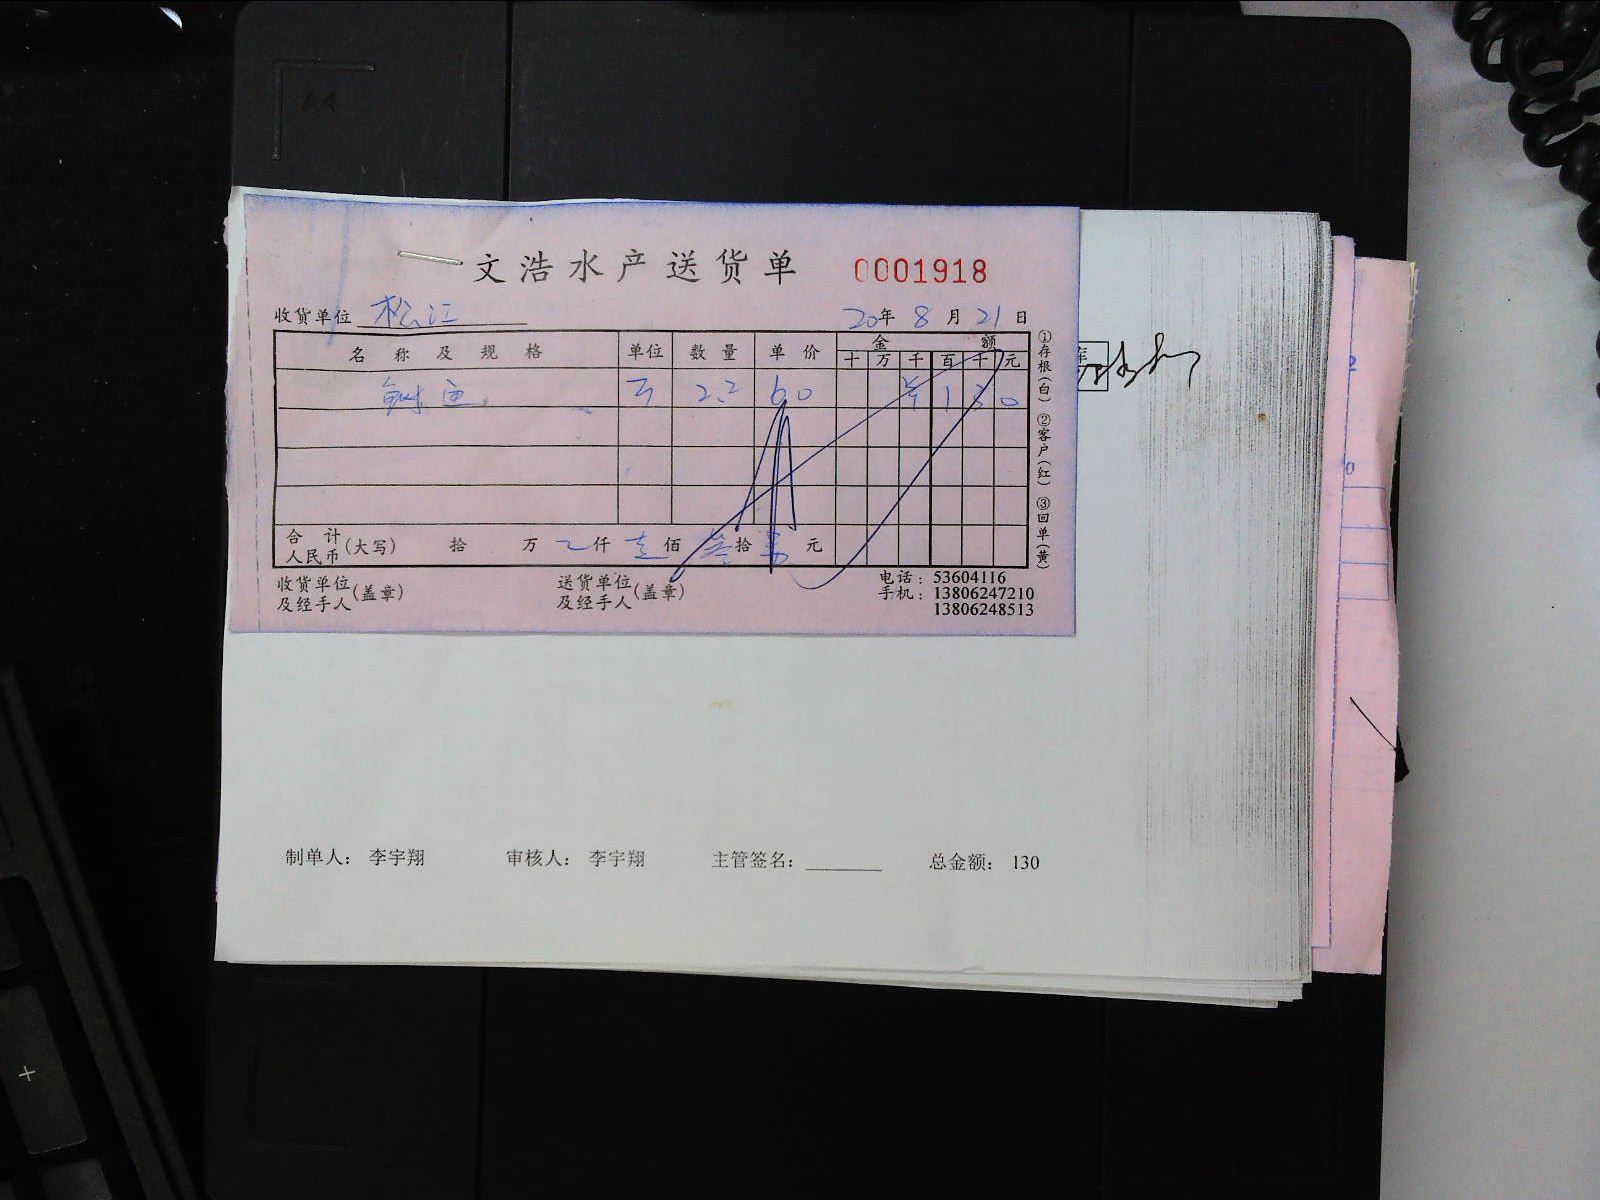 文浩水产送货单 0001918
收货单位 松江 20年 8月 21日
名称及规格 单位 数量 单价 金额
十 万 千 百 千 元
鲥鱼 2.2 60 ¥ 1 3 0
合计人民币(大写) 拾 万 仟 壹佰 叁拾 元
收货单位及经手人(盖章) 送货单位及经手人(盖章) 电话: 53604116
手机: 13806247210
13806248513
①存根(白) ②客户(红) ③回单(黄)
制单人: 李宇翔 审核人: 李宇翔 主管签名: 总金额: 130